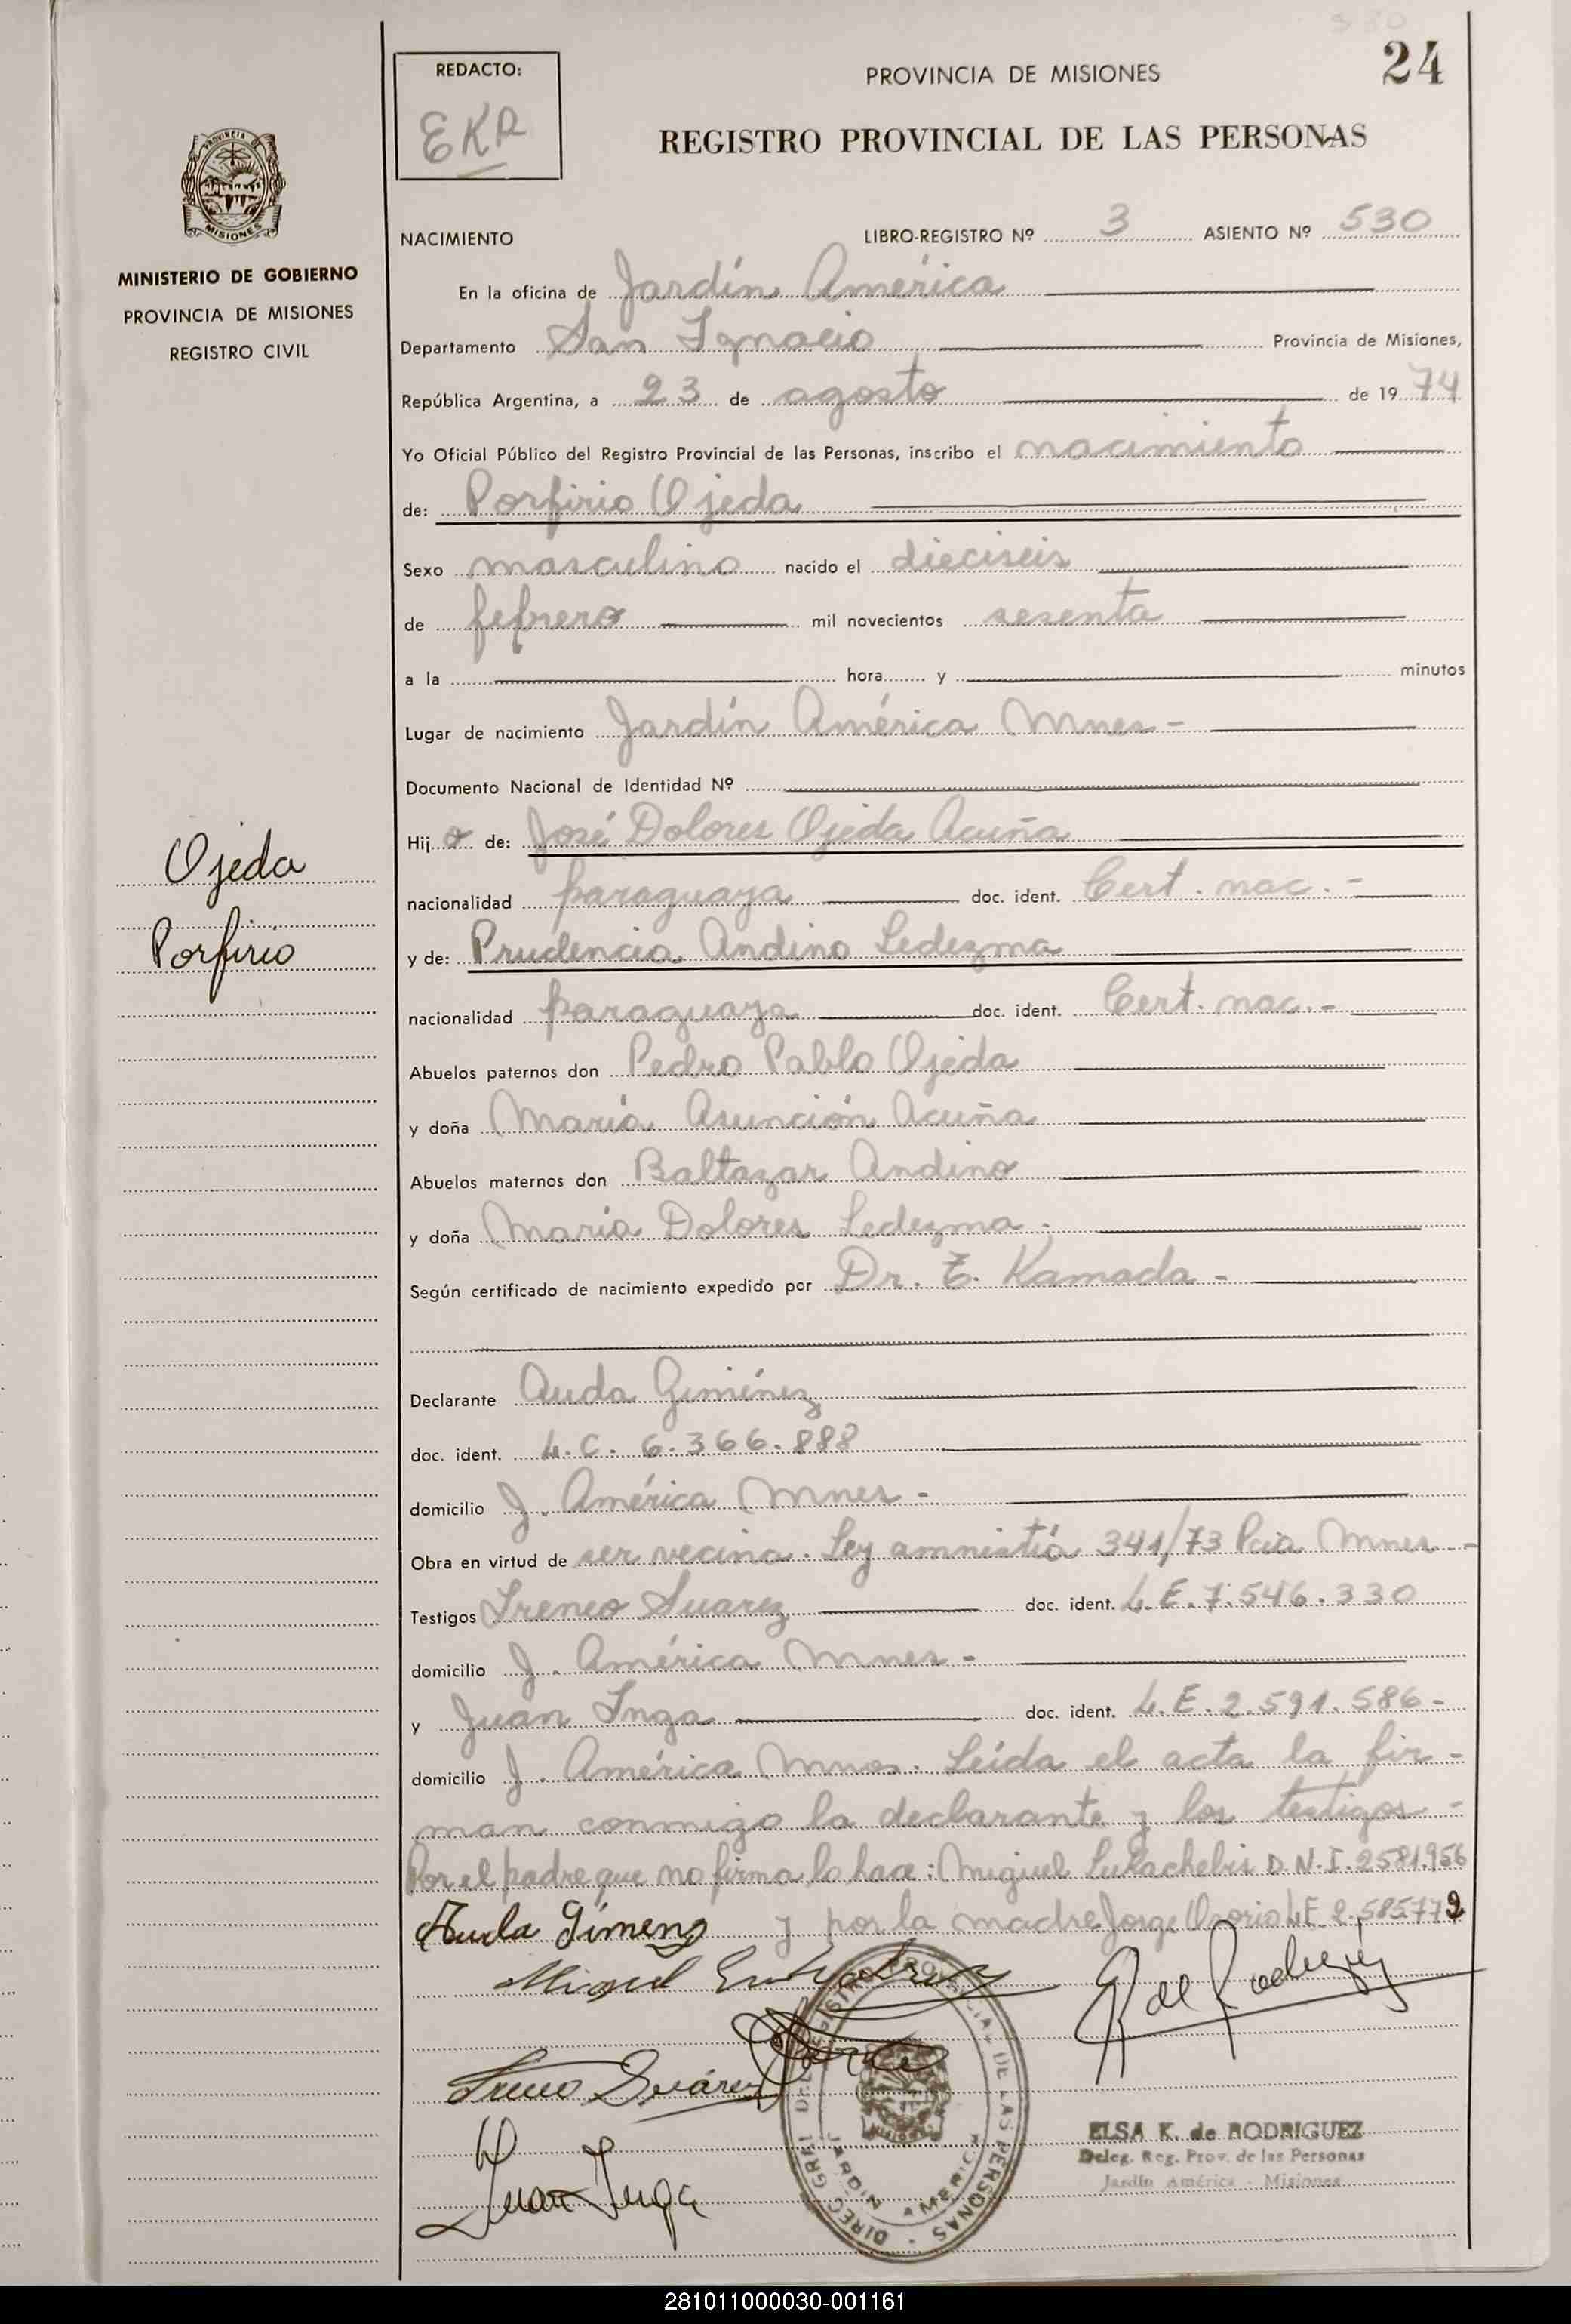 24
REDACTO:
EKR
PROVINCIA DE MISIONES
REGISTRO PROVINCIAL DE LAS PERSONAS
PROVINCIA DE
MISIONES
MINISTERIO DE GOBIERNO
PROVINCIA DE MISIONES
REGISTRO CIVIL
NACIMIENTO LIBRO-REGISTRO Nº 3 ASIENTO Nº 530
En la oficina de Jardín América
Departamento San Ignacio Provincia de Misiones,
República Argentina, a 23 de agosto de 1974
Yo Oficial Público del Registro Provincial de las Personas, inscribo el nacimiento
de: Porfirio Ojeda
Sexo masculino nacido el dieciseis
de febrero mil novecientos sesenta
a la hora y minutos
Lugar de nacimiento Jardín América Mnes -
Documento Nacional de Identidad Nº
Hijo de: José Dolores Ojeda Acuña
nacionalidad paraguaya doc. ident. Cert. nac. -
y de: Prudencia Andino Ledezma
nacionalidad paraguaya doc. ident. Cert. nac. -
Abuelos paternos don Pedro Pablo Ojeda
y doña María Asunción Acuña
Abuelos maternos don Baltazar Andino
y doña María Dolores Ledezma -
Según certificado de nacimiento expedido por Dr. E. Kamada -
Declarante Auda Giménez
doc. ident. L.C. 6.366.888
domicilio J. América Mnes -
Obra en virtud de ser vecina. Ley amnistía 341/73 Pcia Mnes -
Testigos Ireneo Suarez doc. ident. L.E. 7.546.330
domicilio J. América Mnes -
y Juan Inga doc. ident. L.E. 2.591.586 -
domicilio J. América Mnes. Leída el acta la fir-
man conmigo la declarante y los testigos -
Por el padre que no firma lo hace: Miguel D.N.I. 2581.956
Auda Gimenz y por la madre Jorge Osorio L.E. 2.585779
Miguel
Ireneo Suárez
Juan Inga
Ojeda
Porfirio
DIREC. GRAL DEL REGISTRO PROVINCIAL DE LAS PERSONAS
MISIONES
JARDIN AMERICA
ELSA K. de RODRIGUEZ
Deleg. Reg. Prov. de las Personas
Jardín América - Misiones
281011000030-001161